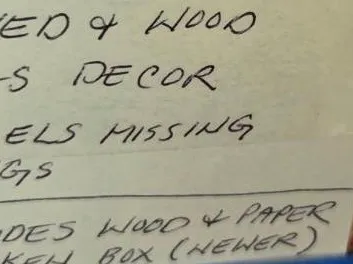 ED & WOOD
S DECOR
ELS MISSING
GS
DES WOOD & PAPER
KEN BOX (NEWER)